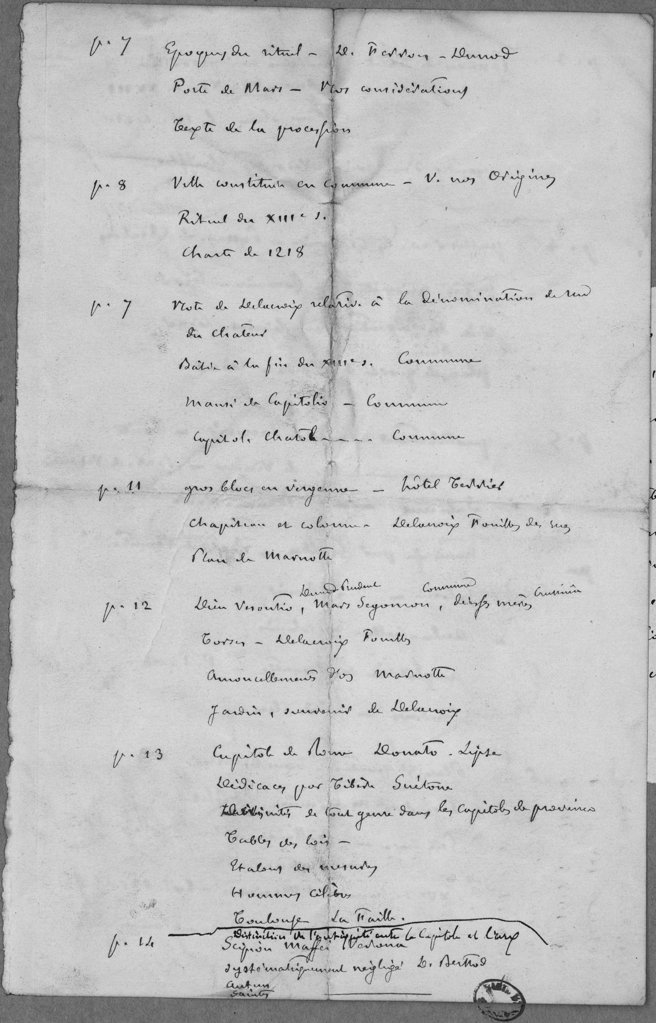 p. 7 Epoques du rituel – D. Ferron – Dunod
Porte de Mars – Nos considérations
Texte de la procession
p. 8 Ville constituée en commune – V. nos Origines
Rituel du XIIIe s.
Charte de 1218
p. 7 Note de Delacroix relative à la dénomination de rue
du Chateur
Bâtie à la fin du XIIIe s. Commune
Mansi de Capitolio – Commune
Capitole Chatol - - - - Commune
p. 11 gros blocs en vergenne – hôtel Terrier
Chapiteau et colonne – Delacroix Fouilles des rues
Plan de Marnotte
Dunod Prudent Commune
p. 12 Dieu Vesontio, Mars Segomon, déesses mères
Torses – Delacroix Fouilles
Amoncellements d'os Marnotte
Jardin, souvenir de Delacroix
p. 13 Capitole de Rome Donato – Lipse
Dédicaces par Tibère Suétone
Divinités de tout genre dans les capitoles de province
Tables des lois –
Etalons des mesures
Hommes célèbres
Toulouse La Faille.
Distinction de l'antiquité entre le Capitole et l'arx
p. 14 Scipion Maffei Verona
systématiquement négligé D. Berthod
Autun
Saintes